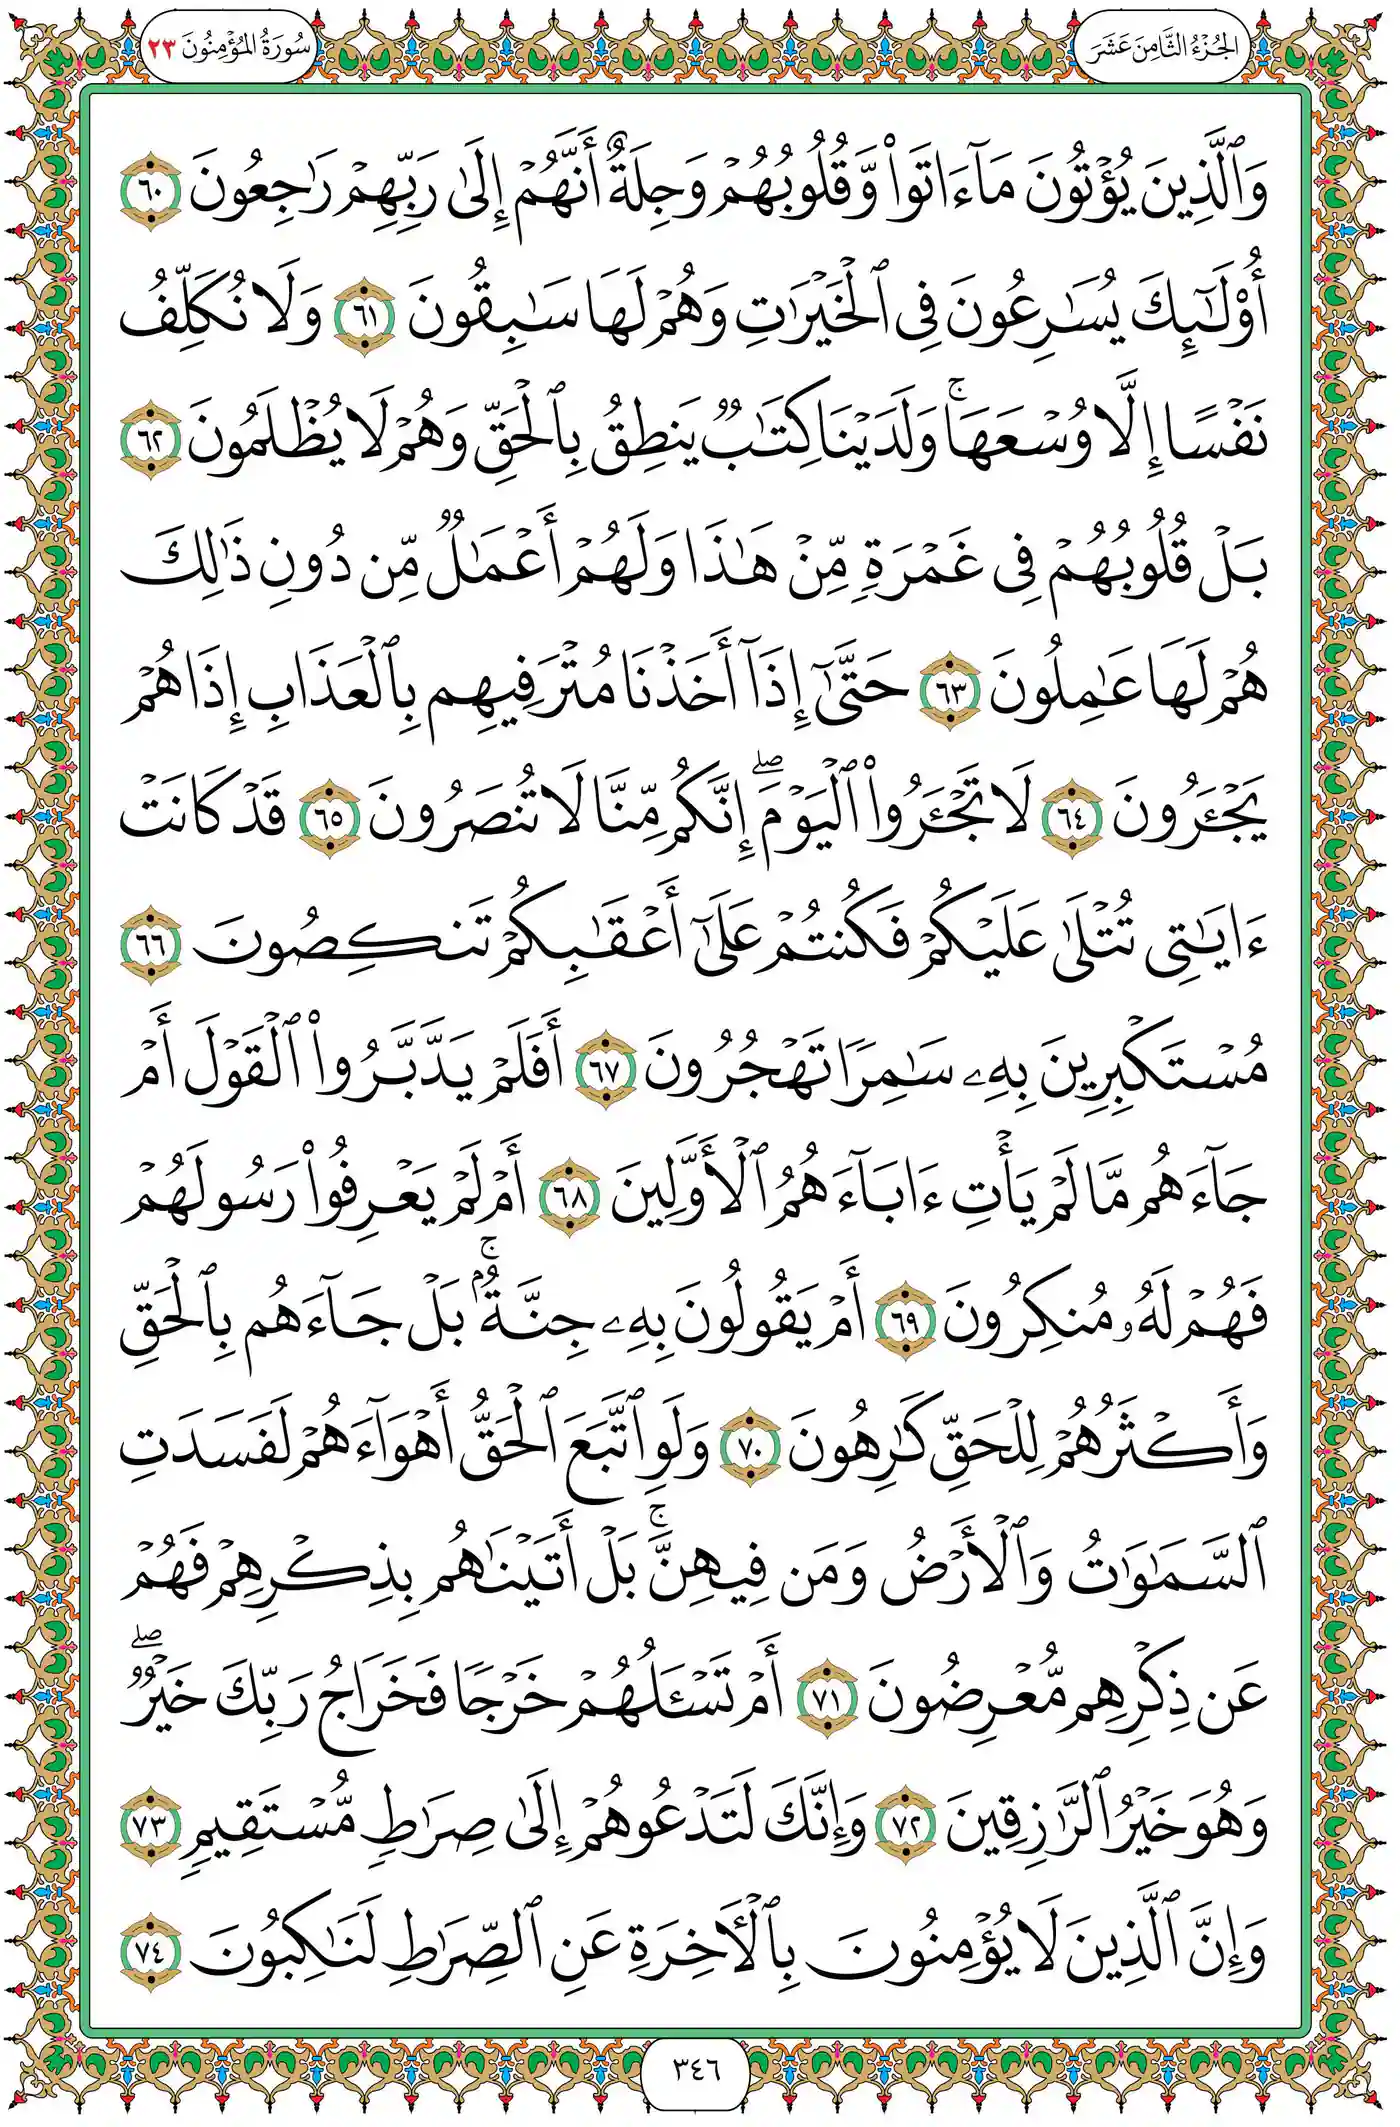 سُورَةُ المُؤْمِنُونَ ٢٣
الجُزْءُ الثَّامِنَ عَشَرَ
وَٱلَّذِينَ يُؤْتُونَ مَآ ءَاتَوا۟ وَّقُلُوبُهُمْ وَجِلَةٌ أَنَّهُمْ إِلَىٰ رَبِّهِمْ رَٰجِعُونَ ٦٠
أُو۟لَٰٓئِكَ يُسَٰرِعُونَ فِى ٱلْخَيْرَٰتِ وَهُمْ لَهَا سَٰبِقُونَ ٦١ وَلَا نُكَلِّفُ
نَفْسًا إِلَّا وُسْعَهَا ۚ وَلَدَيْنَا كِتَٰبٌ يَنطِقُ بِٱلْحَقِّ وَهُمْ لَا يُظْلَمُونَ ٦٢
بَلْ قُلُوبُهُمْ فِى غَمْرَةٍ مِّنْ هَٰذَا وَلَهُمْ أَعْمَٰلٌ مِّن دُونِ ذَٰلِكَ
هُمْ لَهَا عَٰمِلُونَ ٦٣ حَتَّىٰٓ إِذَآ أَخَذْنَا مُتْرَفِيهِم بِٱلْعَذَابِ إِذَا هُمْ
يَجْـَٔرُونَ ٦٤ لَا تَجْـَٔرُوا۟ ٱلْيَوْمَ ۖ إِنَّكُم مِّنَّا لَا تُنصَرُونَ ٦٥ قَدْ كَانَتْ
ءَايَٰتِى تُتْلَىٰ عَلَيْكُمْ فَكُنتُمْ عَلَىٰٓ أَعْقَٰبِكُمْ تَنكِصُونَ ٦٦
مُسْتَكْبِرِينَ بِهِۦ سَٰمِرًا تَهْجُرُونَ ٦٧ أَفَلَمْ يَدَّبَّرُوا۟ ٱلْقَوْلَ أَمْ
جَآءَهُم مَّا لَمْ يَأْتِ ءَابَآءَهُمُ ٱلْأَوَّلِينَ ٦٨ أَمْ لَمْ يَعْرِفُوا۟ رَسُولَهُمْ
فَهُمْ لَهُۥ مُنكِرُونَ ٦٩ أَمْ يَقُولُونَ بِهِۦ جِنَّةٌۢ ۚ بَلْ جَآءَهُم بِٱلْحَقِّ
وَأَكْثَرُهُمْ لِلْحَقِّ كَٰرِهُونَ ٧٠ وَلَوِ ٱتَّبَعَ ٱلْحَقُّ أَهْوَآءَهُمْ لَفَسَدَتِ
ٱلسَّمَٰوَٰتُ وَٱلْأَرْضُ وَمَن فِيهِنَّ ۚ بَلْ أَتَيْنَٰهُم بِذِكْرِهِمْ فَهُمْ
عَن ذِكْرِهِم مُّعْرِضُونَ ٧١ أَمْ تَسْـَٔلُهُمْ خَرْجًا فَخَرَاجُ رَبِّكَ خَيْرٌ ۖ
وَهُوَ خَيْرُ ٱلرَّٰزِقِينَ ٧٢ وَإِنَّكَ لَتَدْعُوهُمْ إِلَىٰ صِرَٰطٍ مُّسْتَقِيمٍ ٧٣
وَإِنَّ ٱلَّذِينَ لَا يُؤْمِنُونَ بِٱلْـَٔاخِرَةِ عَنِ ٱلصِّرَٰطِ لَنَٰكِبُونَ ٧٤
٣٤٦